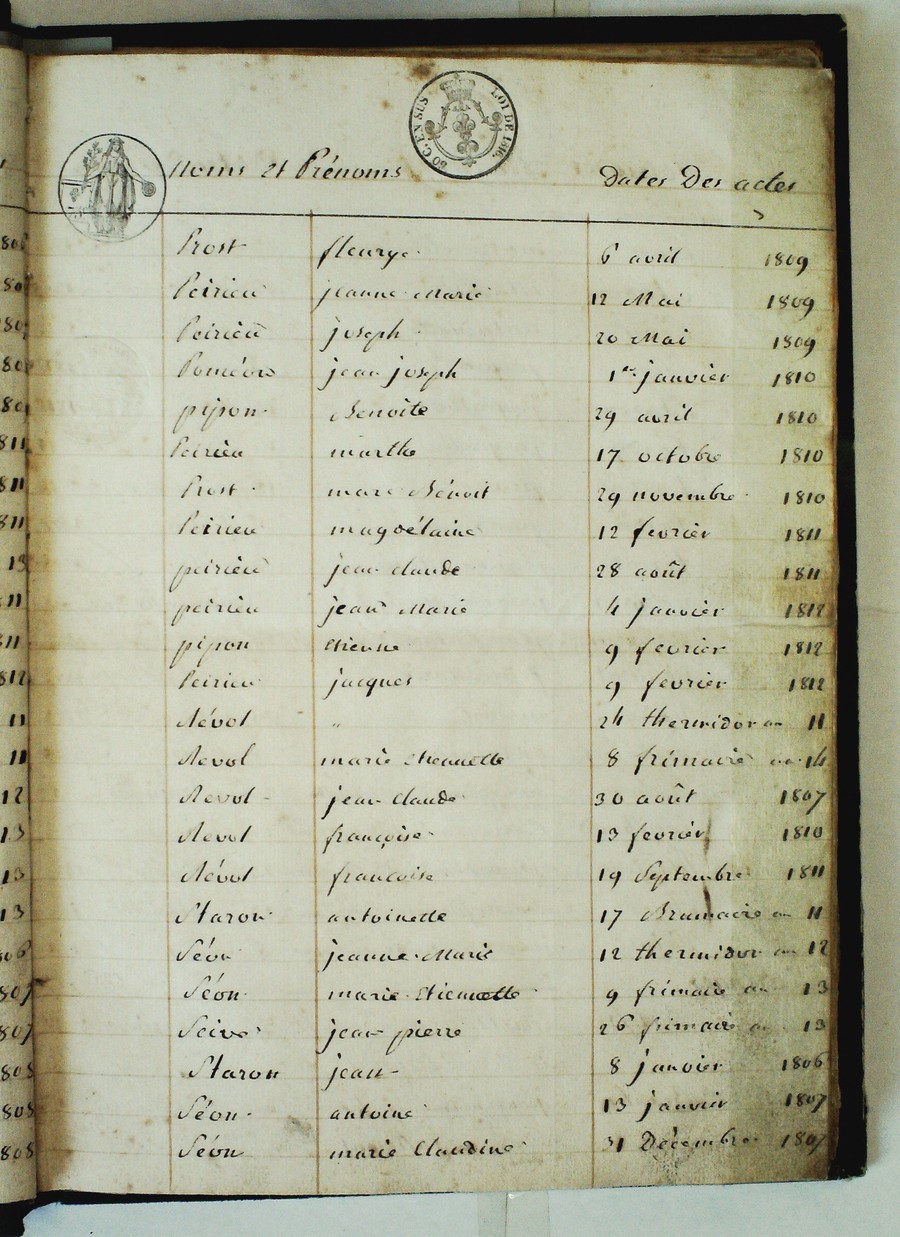 50 C. EN SUS LOI DE 1816.
Noms et Prénoms Dates Des actes
Prost fleurye 6 avril 1809
Peirieu jeanne Marie 12 Mai 1809
Peirieu joseph 20 Mai 1809
jean joseph 1er janvier 1810
pipon Benoite 29 avril 1810
Peirieu marthe 17 octobre 1810
Prost marc Bénoit 29 novembre 1810
Peirieu magdélaine 12 fevrier 1811
peirieu jean claude 28 août 1811
peirieu jean Marie 4 janvier 1812
pipon etienne 9 fevrier 1812
Peirieu jacques 9 fevrier 1812
Révol " 24 thermidor an 11
Revol marie etiennette 8 frimaire an 14
Revol jean claude 30 août 1807
Revol françoise 13 fevrier 1810
Révol francoise 19 Septembre 1811
Staron antoinede 17 Brumaire an 11
Séon jeanne Marie 12 thermidor an 12
Séon marie etiennette 9 frimaire an 13
Seive jean pierre 26 frimaire an 13
Staron jean 8 janvier 1806
Séon antoine 13 janvier 1807
Séon marie Claudine 31 Décembre 1807